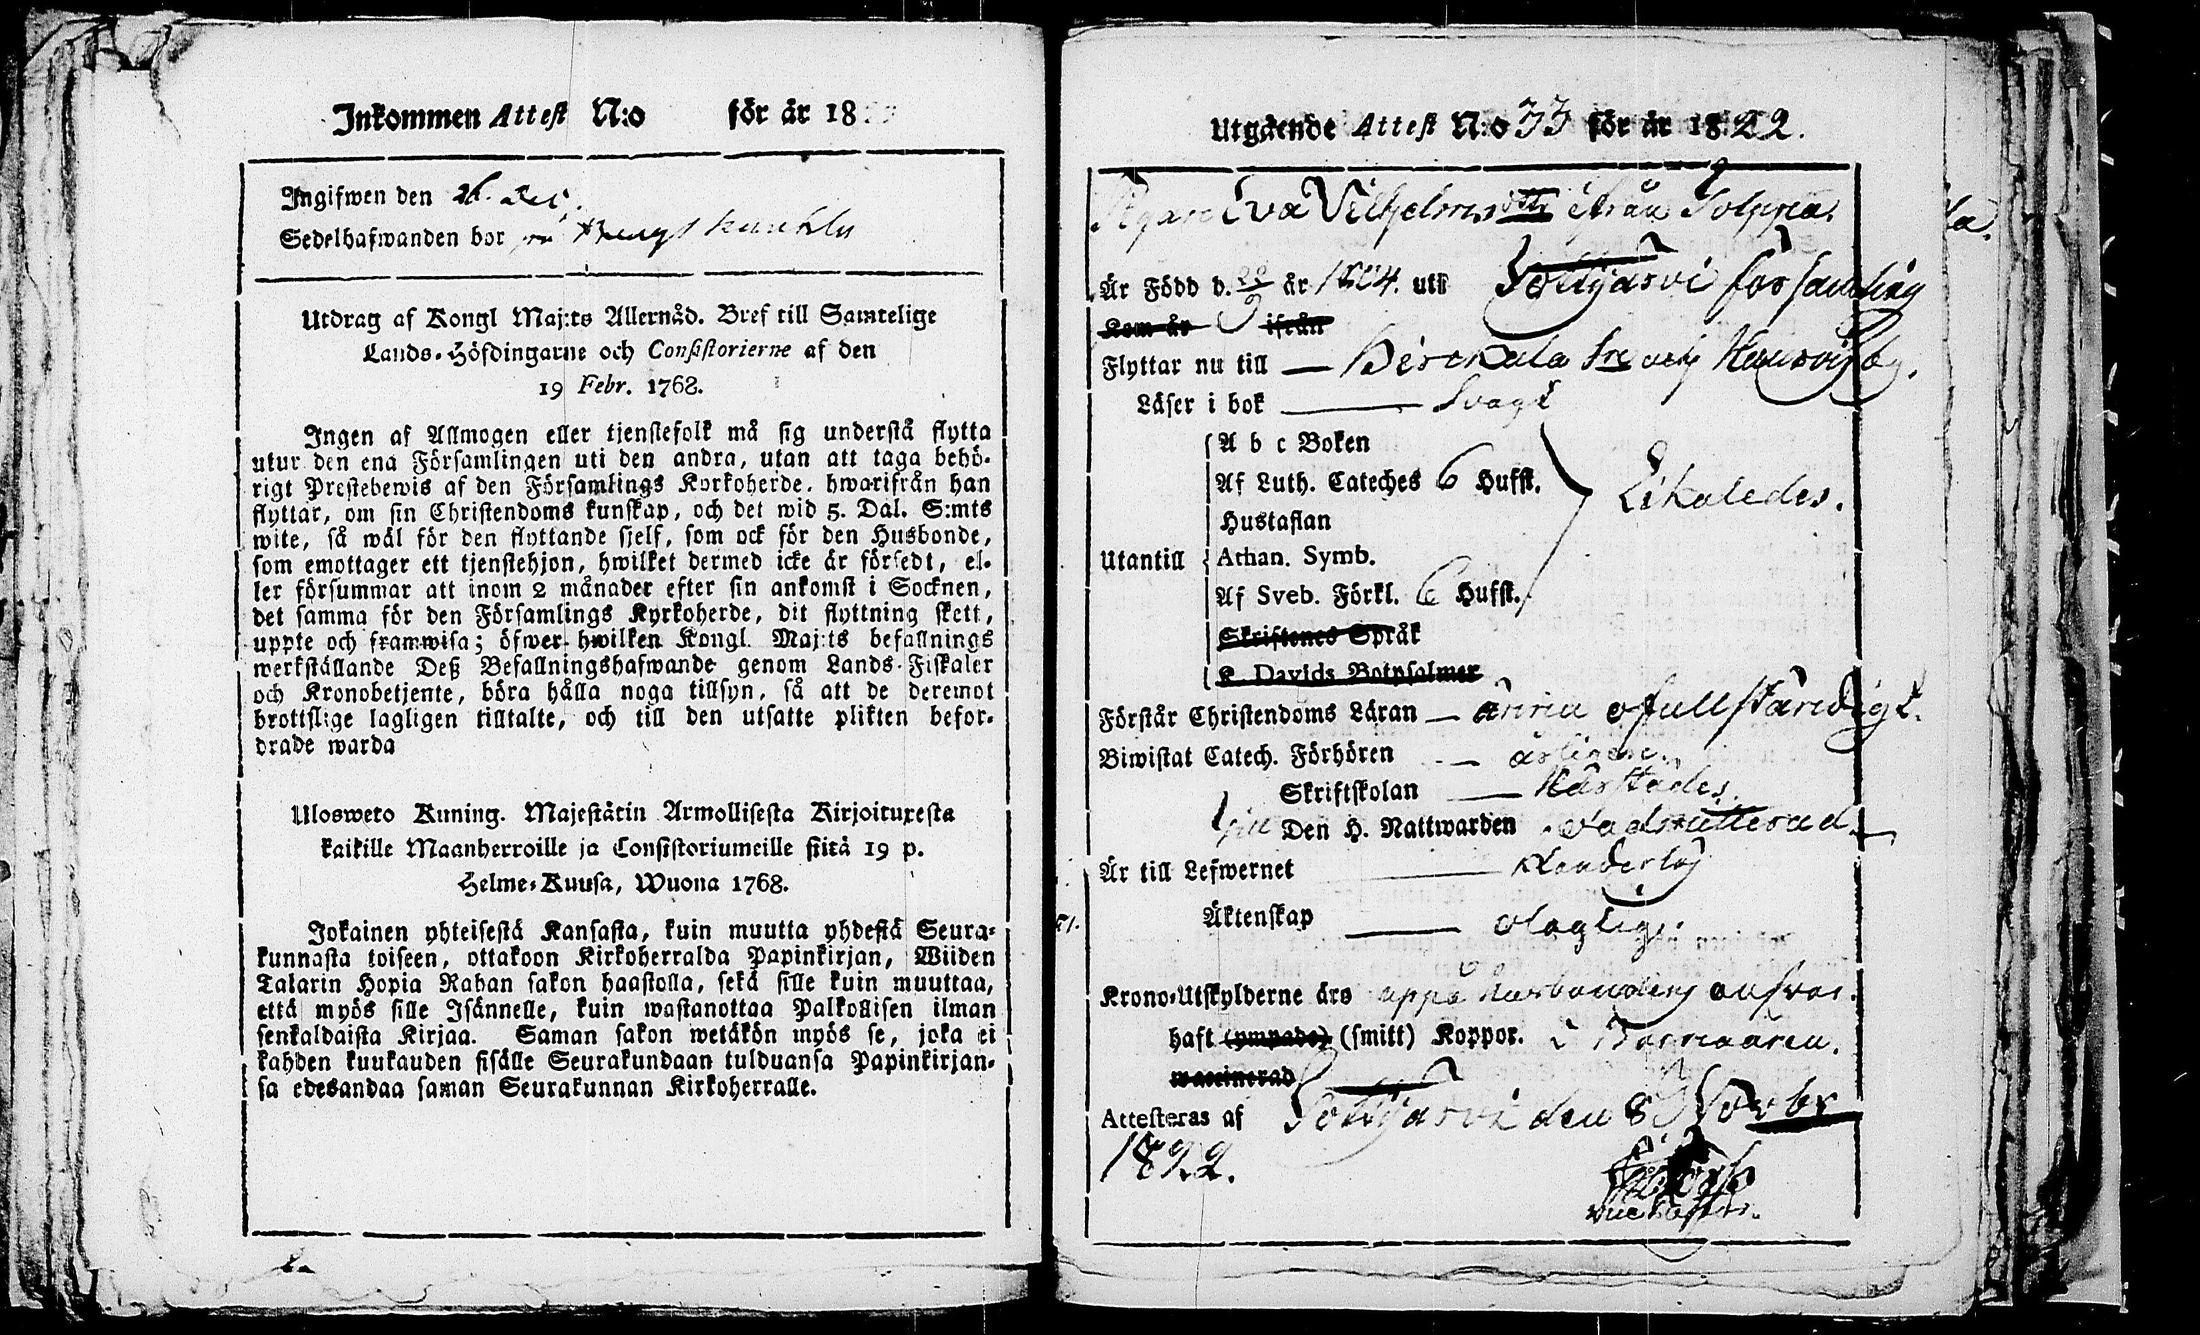 Inkommen Attest N:o för år 18
Ingifwen den 26. Dec.
Sedelhafwanden bor
Utdrag af Kongl Maj:ts Allernåd. Bref till Samtelige
Lands-Höfdingarne och Consistorierne af den
19 Febr. 1768.
Ingen af Allmogen eller tjenstefolk må sig understå flytta
utur den ena Församlingen uti den andra, utan att taga behö-
rigt Prestebewis af den Församlings Kyrkoherde, hwarifrån han
flyttar, om sin Christendoms kunskap, och det wid 5. Dal. S:mts
wite, så wäl för den flyttande sjelf, som ock för den Husbonde,
som emottager ett tjenstehjon, hwilket dermed icke är försedt, el-
ler försummar att inom 2 månader efter sin ankomst i Socknen,
det samma för den Församlings Kyrkoherde, dit flyttning skett,
uppte och framwisa; öfwer hwilken Kongl. Maj:ts befallnings
werkställande Deß Befallningshafwande genom Lands-Fiskaler
och Kronobetjente, böra hålla noga tillsyn, så att de deremot
brottslige lagligen tilltalte, och till den utsatte plikten befor-
drade warda
Ulosweto Kuning. Majestätin Armollisesta Kirjoituxesta
kaikille Maanherroille ja Consistoriumeille siitä 19 p.
Helme-Kuusa, Wuona 1768.
Jokainen yhteisestä Kansasta, kuin muutta yhdestä Seura-
kunnasta toiseen, ottakoon Kirkoherralda Papinkirjan, Wiiden
Talarin Hopia Rahan sakon haastolla, sekä sille kuin muuttaa,
että myös sille Isännelle, kuin wastanottaa Palkollisen ilman
senkaldaista Kirjaa. Saman sakon wetäkön myös se, joka ei
kahden kuukauden sisälle Seurakundaan tulduansa Papinkirjan-
sa edesandaa saman Seurakunnan Kirkoherralle.
Utgående Attest N:o 33 för år 1822.
Pigan Eva Vilhelmsdotr ifrån
Är Född d. 22/9 år 1804. uti Pottjärvi församling
Kom år ifrån
Flyttar nu till — Hausviby.
Läser i bok — Svagt
A b c Boken
Af Luth. Cateches 6 Hufst.
Hustaflan
Likaledes.
Utantill Athan. Symb.
Af Sveb. Förkl. 6 Hufst.
Skriftenes Språk
K. Davids Botpsalmer
Förstår Christendoms Läran — ännu ofullständigt.
Biwistat Catech. Förhören — årligen.
Skriftskolan —
Den H. Nattwarden oadmitterad.
Är till Lefwernet — klanderlös
Äktenskap — olaglig.
Krono-Utskylderne äro uppå husbondens ansvar.
haft (ympade) (smitt) Koppor. i Barnaåren.
waccinerad
Attesteras af Pottjärvi den 8 Novbr
1822.